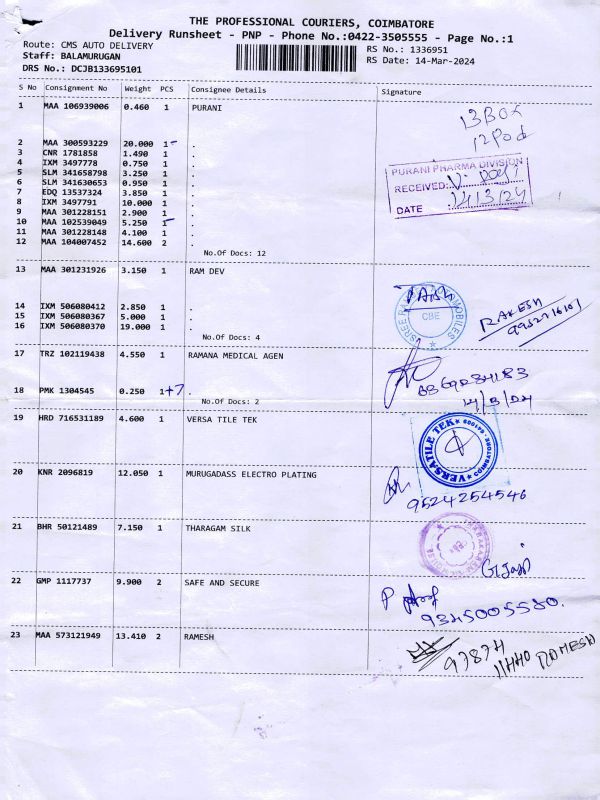 THE PROFESSIONAL COURIERS, COIMBATORE
Delivery Runsheet - PNP - Phone No.:0422-3505555 - Page No.:1
Route: CMS AUTO DELIVERY RS No.: 1336951
Staff: BALAMURUGAN RS Date: 14-Mar-2024
DRS No.: DCJB133695101
S No Consignment No Weight PCS Consignee Details Signature
1 MAA 106939006 0.460 1 PURANI
13 Box
12 Pod
2 MAA 300593229 20.000 1 .
3 CNR 1781858 1.490 1 .
4 IXM 3497778 0.750 1 .
5 SLM 341658798 3.250 1 .
6 SLM 341630653 0.950 1 .
7 EDQ 13537324 3.850 1 .
8 IXM 3497791 10.000 1 .
9 MAA 301228151 2.900 1 .
10 MAA 102539049 5.250 1 .
11 MAA 301228148 4.100 1 .
12 MAA 104007452 14.600 2 .
No.Of Docs: 12
PURANI PHARMA DIVISION
RECEIVED:
DATE 14/3/24
13 MAA 301231926 3.150 1 RAM DEV
14 IXM 506080412 2.850 1 .
15 IXM 506080367 5.000 1 .
16 IXM 506080370 19.000 1 .
No.Of Docs: 4
CBE
RAKESH
17 TRZ 102119438 4.550 1 RAMANA MEDICAL AGEN
18 PMK 1304545 0.250 1+7 .
No.Of Docs: 2
19 HRD 716531189 4.600 1 VERSA TILE TEK
VERSATILE TEK
20 KNR 2096819 12.050 1 MURUGADASS ELECTRO PLATING
9524254546
21 BHR 50121489 7.150 1 THARAGAM SILK
22 GMP 1117737 9.900 2 SAFE AND SECURE
9345005580.
23 MAA 573121949 13.410 2 RAMESH